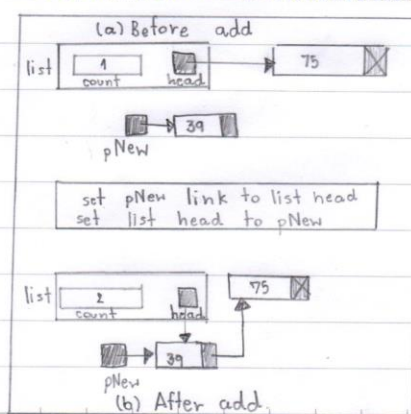 (a) Before add
list
1
count
head
75
39
pNew
set pNew link to list head
set list head to pNew
list
2
count
head
75
39
pNew
(b) After add.